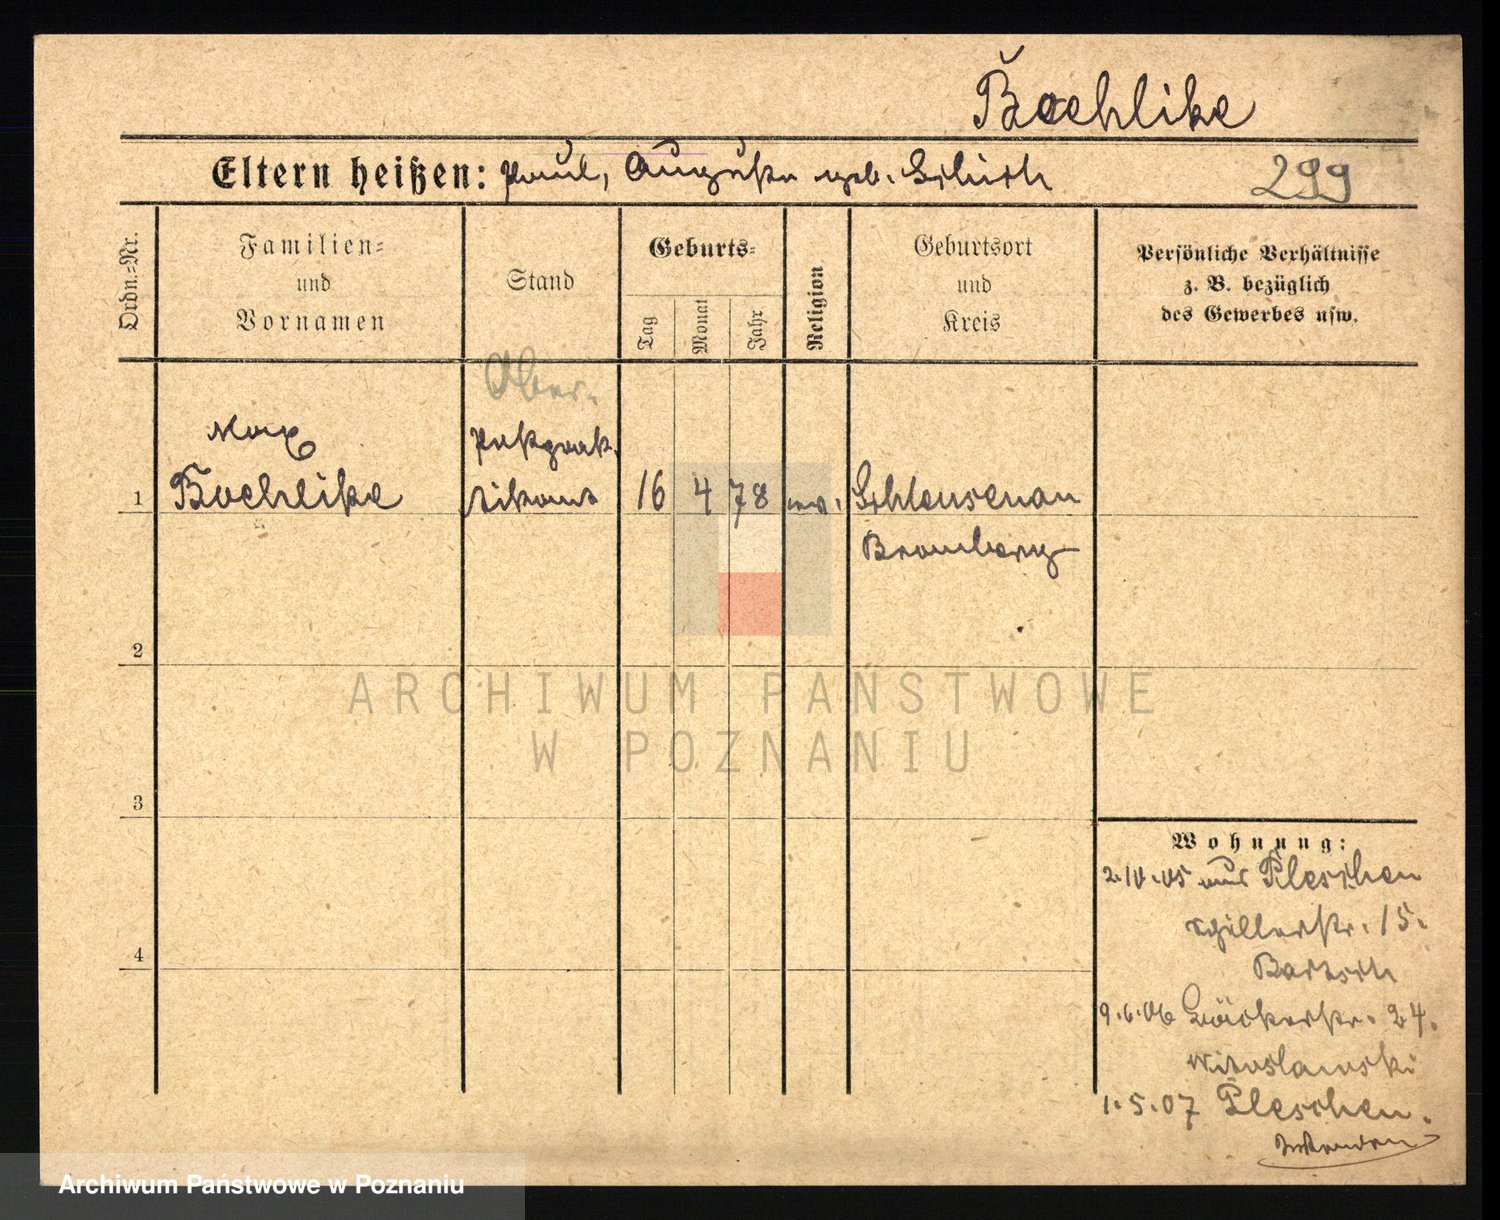 Boehlike
Eltern heißen: Paul, Auguste geb. Schich
299
Ordn.=Nr.
Familien=
und
Vornamen
Stand
Geburts=
Tag
Monat
Jahr
Religion
Geburtsort
und
Kreis
Persönliche Verhältnisse
z. B. bezüglich
des Gewerbes usw.
Ober-
Max
Postprak
1 Boehlike tikant 16 4 78 ev. Schleusenau
Bromberg
2
3
4
Wohnung:
2.10.05 aus Pleschen
Schillerstr. 15.
Bartsch
9.6.06 Bäckerstr. 24.
Witoslawski
1.5.07 Pleschen.
ARCHIWUM PAŃSTWOWE
W POZNANIU
Archiwum Państwowe w Poznaniu